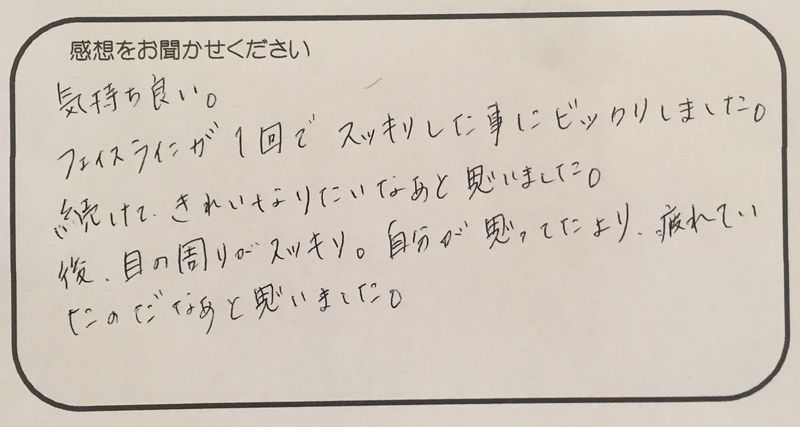 感想をお聞かせください
気持ち良い。
フェイスラインが1回でスッキリした事にビックリしました。
続けて、きれいなりたいなあと思いました。
後、目の周りがスッキリ。自分が思ってたより、疲れてい
たのだなあと思いました。